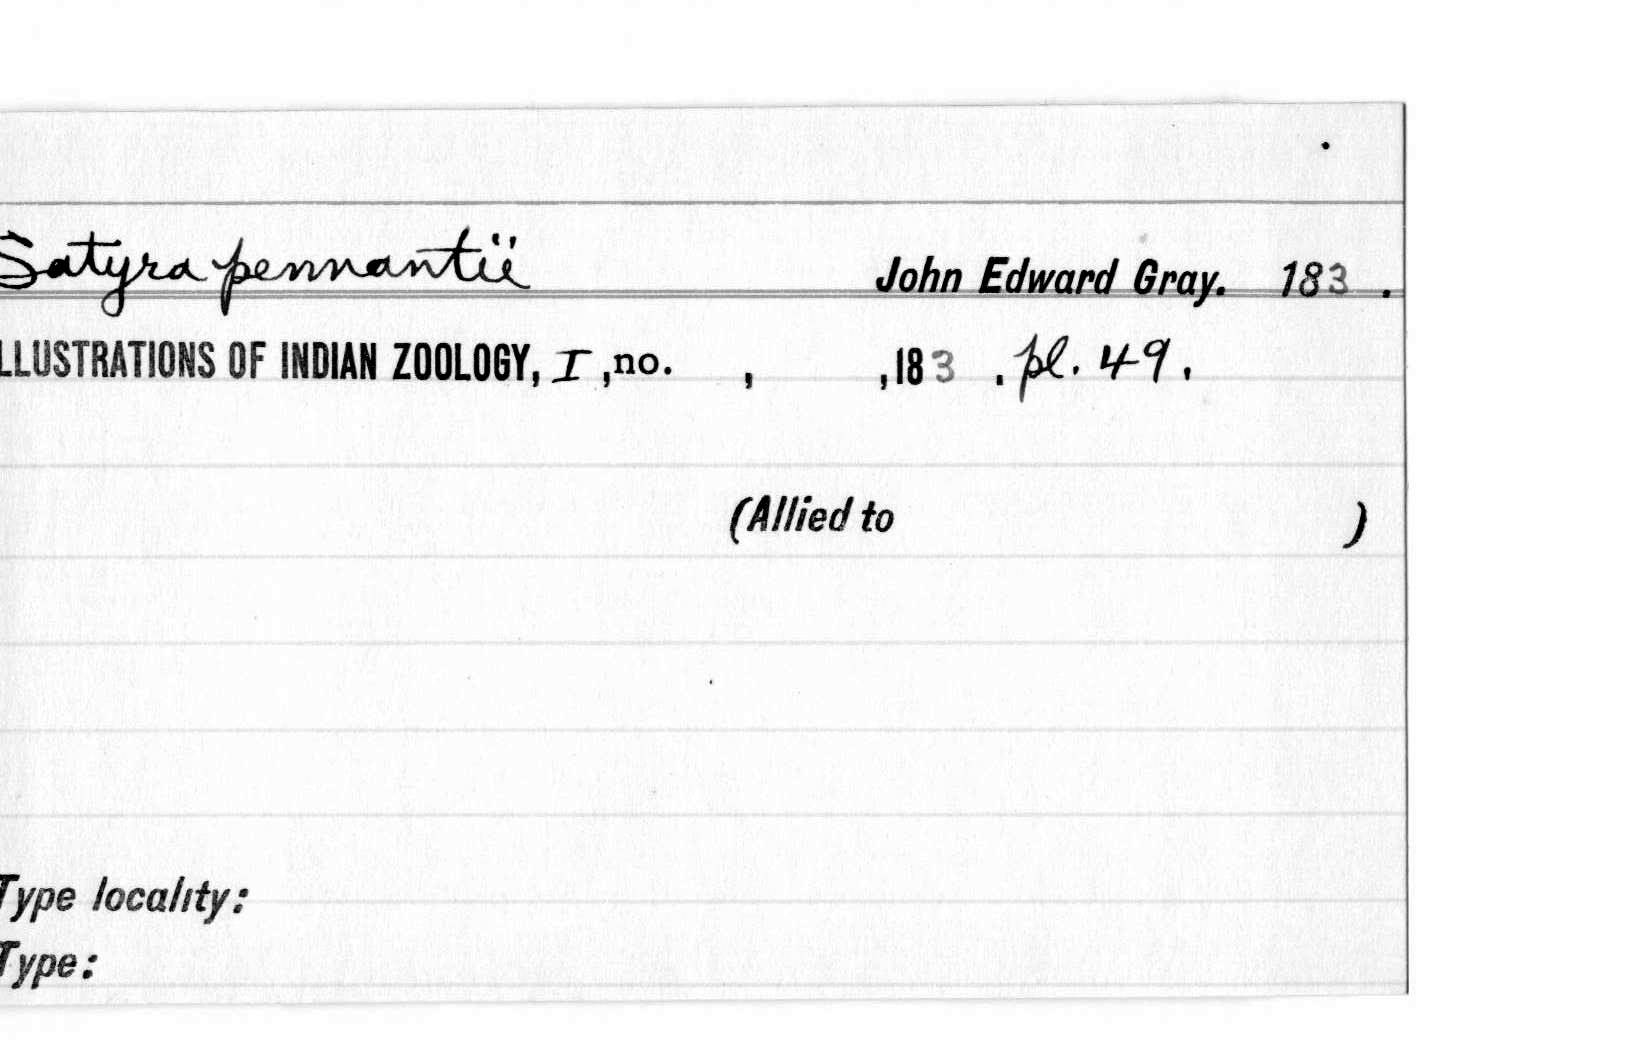 Satyra pennantii John Edward Gray. 183 .
LLUSTRATIONS OF INDIAN ZOOLOGY, I ,no. , ,183 . pl. 49.
(Allied to )
Type locality:
Type: